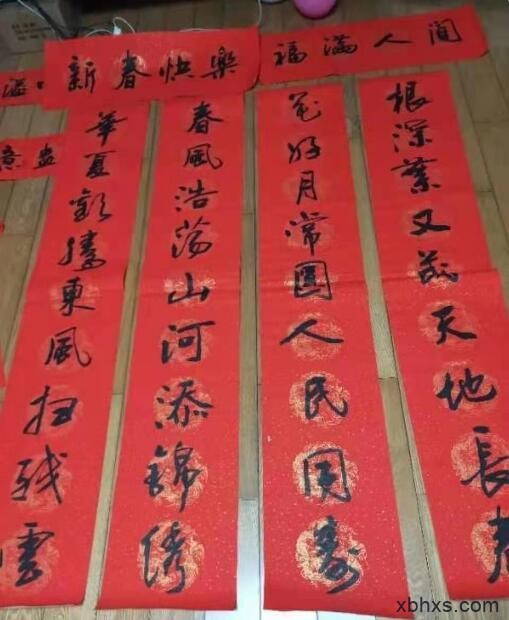 新春快樂
福滿人间
意盎
根深葉又茂天地長春
花好月常圓人民同寿
春風浩荡山河添錦绣
華夏歡騰東風扫残雲
xbhxs.com